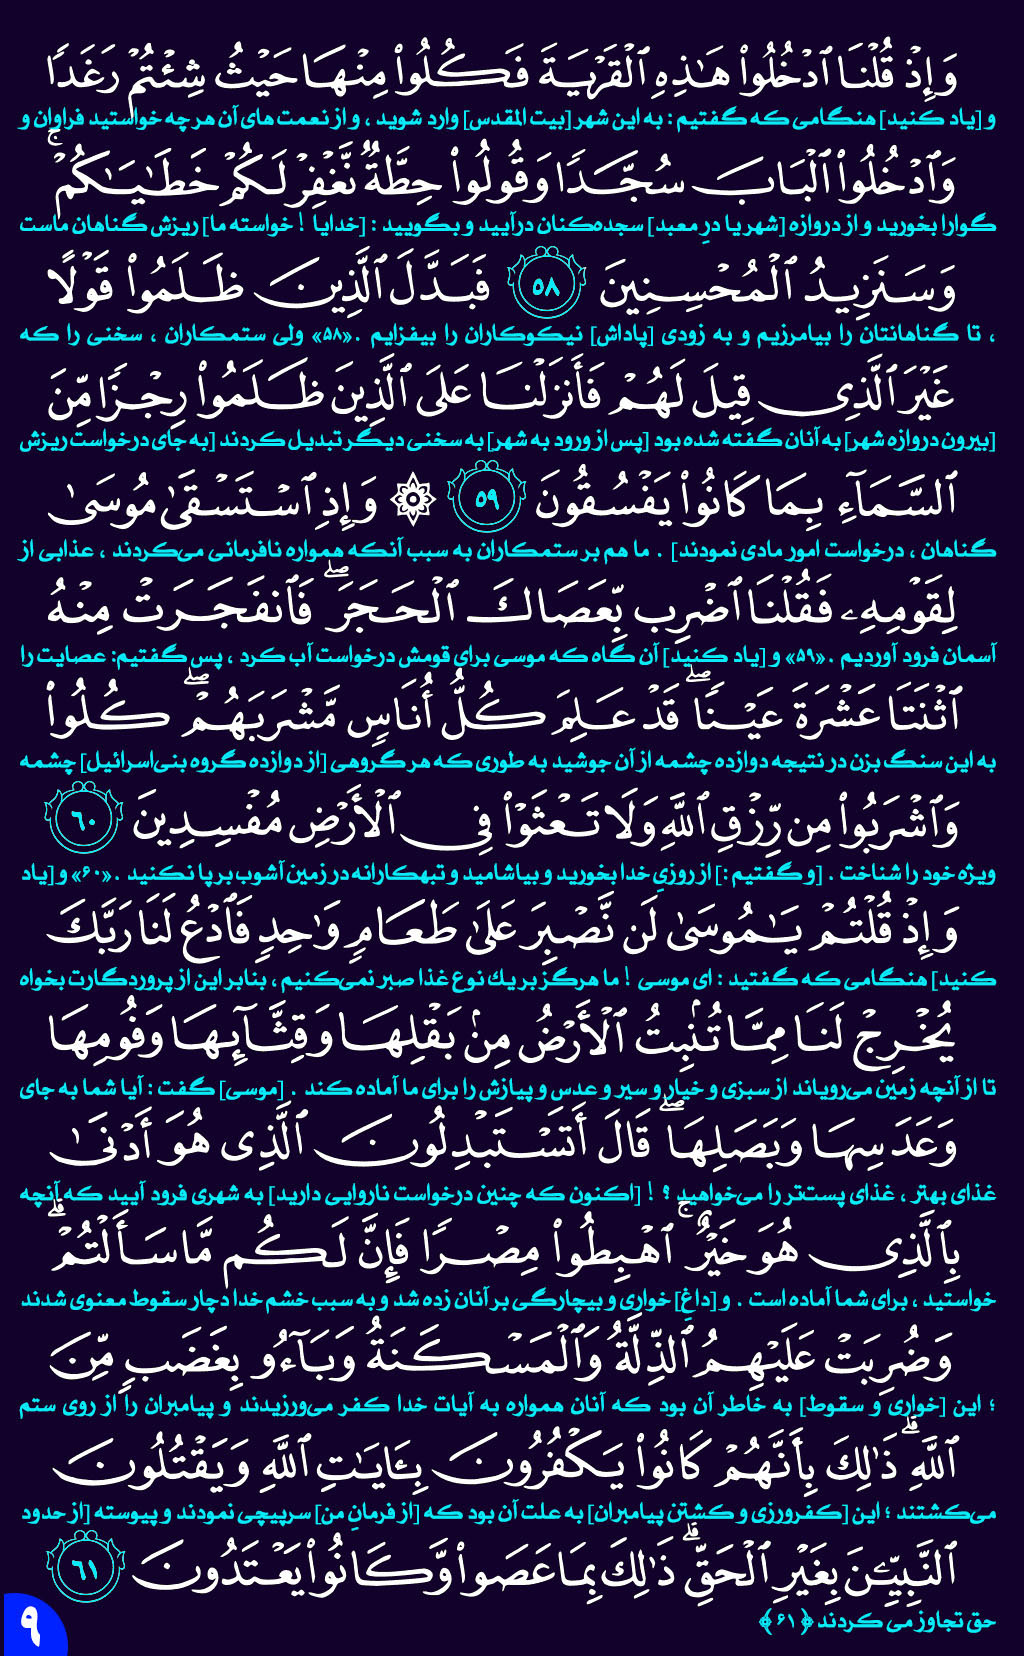 وَإِذْ قُلْنَا ٱدْخُلُوا۟ هَـٰذِهِ ٱلْقَرْيَةَ فَكُلُوا۟ مِنْهَا حَيْثُ شِئْتُمْ رَغَدًا
و [یاد کنید] هنگامی که گفتیم : به این شهر [بیت المقدس] وارد شوید ، و از نعمت های آن هر چه خواستید فراوان و
وَٱدْخُلُوا۟ ٱلْبَابَ سُجَّدًا وَقُولُوا۟ حِطَّةٌ نَّغْفِرْ لَكُمْ خَطَـٰيَـٰكُمْ ۚ
گوارا بخورید و از دروازه [شهر یا درِ معبد] سجده‌کنان درآیید و بگویید : [خدایا ! خواسته ما] ریزش گناهان ماست
وَسَنَزِيدُ ٱلْمُحْسِنِينَ ۝٥٨ فَبَدَّلَ ٱلَّذِينَ ظَلَمُوا۟ قَوْلًا
، تا گناهانتان را بیامرزیم و به زودی [پاداش] نیکوکاران را بیفزایم .«۵۸» ولی ستمکاران ، سخنی را که
غَيْرَ ٱلَّذِى قِيلَ لَهُمْ فَأَنزَلْنَا عَلَى ٱلَّذِينَ ظَلَمُوا۟ رِجْزًا مِّنَ
[بیرون دروازه شهر] به آنان گفته شده بود [پس از ورود به شهر] به سخنی دیگر تبدیل کردند [به جای درخواست ریزش
ٱلسَّمَآءِ بِمَا كَانُوا۟ يَفْسُقُونَ ۝٥٩ ۞ وَإِذِ ٱسْتَسْقَىٰ مُوسَىٰ
گناهان ، درخواست امور مادی نمودند] . ما هم بر ستمکاران به سبب آنکه همواره نافرمانی می‌کردند ، عذابی از
لِقَوْمِهِۦ فَقُلْنَا ٱضْرِب بِّعَصَاكَ ٱلْحَجَرَ ۖ فَٱنفَجَرَتْ مِنْهُ
آسمان فرود آوردیم .«۵۹» و [یاد کنید] آن گاه که موسی برای قومش درخواست آب کرد ، پس گفتیم: عصایت را
ٱثْنَتَا عَشْرَةَ عَيْنًا ۖ قَدْ عَلِمَ كُلُّ أُنَاسٍ مَّشْرَبَهُمْ ۖ كُلُوا۟
به این سنگ بزن در نتیجه دوازده چشمه از آن جوشید به طوری که هر گروهی [از دوازده گروه بنی‌اسرائیل] چشمه
وَٱشْرَبُوا۟ مِن رِّزْقِ ٱللَّهِ وَلَا تَعْثَوْا۟ فِى ٱلْأَرْضِ مُفْسِدِينَ ۝٦٠
ویژه خود را شناخت . [و گفتیم :] از روزیِ خدا بخورید و بیاشامید و تبهکارانه در زمین آشوب برپا نکنید .«۶۰» و [یاد
وَإِذْ قُلْتُمْ يَـٰمُوسَىٰ لَن نَّصْبِرَ عَلَىٰ طَعَامٍ وَٰحِدٍ فَٱدْعُ لَنَا رَبَّكَ
کنید] هنگامی که گفتید : ای موسی ! ما هرگز بر یك نوع غذا صبر نمی‌کنیم ، بنابر این از پروردگارت بخواه
يُخْرِجْ لَنَا مِمَّا تُنۢبِتُ ٱلْأَرْضُ مِنۢ بَقْلِهَا وَقِثَّآئِهَا وَفُومِهَا
تا از آنچه زمین می‌رویاند از سبزی و خیار و سیر و عدس و پیازش را برای ما آماده کند . [موسی] گفت : آیا شما به جای
وَعَدَسِهَا وَبَصَلِهَا ۖ قَالَ أَتَسْتَبْدِلُونَ ٱلَّذِى هُوَ أَدْنَىٰ
غذای بهتر ، غذای پست‌تر را می‌خواهید ؟ ! [اکنون که چنین درخواست ناروایی دارید] به شهری فرود آیید که آنچه
بِٱلَّذِى هُوَ خَيْرٌ ۚ ٱهْبِطُوا۟ مِصْرًا فَإِنَّ لَكُم مَّا سَأَلْتُمْ ۗ
خواستید ، برای شما آماده است . و [داغِ] خواری و بیچارگی بر آنان زده شد و به سبب خشم خدا دچار سقوط معنوی شدند
وَضُرِبَتْ عَلَيْهِمُ ٱلذِّلَّةُ وَٱلْمَسْكَنَةُ وَبَآءُو بِغَضَبٍ مِّنَ
؛ این [خواری و سقوط] به خاطر آن بود که آنان همواره به آیات خدا کفر می‌ورزیدند و پیامبران را از روی ستم
ٱللَّهِ ۗ ذَٰلِكَ بِأَنَّهُمْ كَانُوا۟ يَكْفُرُونَ بِـَٔايَـٰتِ ٱللَّهِ وَيَقْتُلُونَ
می‌کشتند ؛ این [کفرورزی و کشتنِ پیامبران] به علت آن بود که [از فرمانِ من] سرپیچی نمودند و پیوسته [از حدود
ٱلنَّبِيِّـۧنَ بِغَيْرِ ٱلْحَقِّ ۗ ذَٰلِكَ بِمَا عَصَوا۟ وَّكَانُوا۟ يَعْتَدُونَ ۝٦١
حق تجاوز می کردند ﴿۶۱﴾
۹